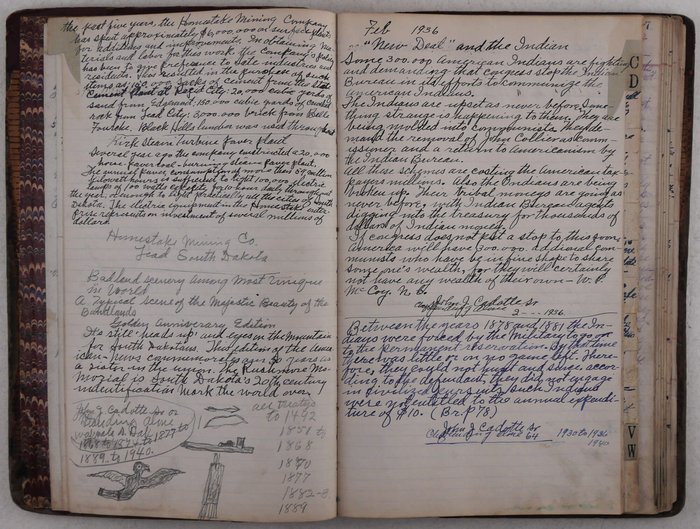 the past five years, the Homestake Mining Company
has spent approximately $6,000,000 on surface plant
for additions and improvements. In obtaining ma-
terials and labor for this work, the Company's policy
has been to give preference to State industries and
residents. This resulted in the purchase of such
items as 190,000 sacks of cement from the State
Cement Plant at Rapid City: 20,000 cubic yards
sand from Edgemont; 130,000 cubic yards of crushed
rock from Rapid City: 3,000,000 brick from Belle
Fourche. Black Hills lumber was used throughout
Kirk Steam Turbine Power plant
Several years ago the company constructed a 20,000
horse power coal-burning steam power plant.
The annual power consumption of more than 89 million
kilowatt hours is equivalent to light 100,000 electric
lamps of 100 watts capacity, for 10 hour daily throughout
the year, enough to light practically all the cities of South
Dakota. The electric equipment in the Homestake enter-
prise represents an investment of several millions of
dollars
Homestake Mining Co.
Lead South Dakota
Badland scenery among Most Unique
in World
A Typical Scene of the Majestic Beauty of the
Bandlands
Golden Anniversary Edition
It's still heads up and eyes in the Mountain
for South Dakotans. This edition of the Amer-
ican-News commemorates our 50 years as
a sister in the union. The Rushmore Me-
morial is South Dakota's 20th century
identification mark the world over,
John J Cadotte Sr or
Standing Elme
Wakpala S. Dak.
1868 to 1874 to 1877 to
1889 to 1940.
all treaties
to 1492
1851 to
1868
1870
1877
1882-8
1889
Feb 1936
"New Deal" and the Indian
Some 300,000 American Indians are fighting
and demanding that congress stop the Indian
Bureau in its efforts to communize the
American Indian.
The Indians are upset as never before. Some-
thing strange is happening to them. They are
being molded into communists. They de-
mand the removal of John Collier as Comm-
issioner and a return to Americanism by
the Indian Bureau.
All these schemes are costing the American tax-
payers millions. Also the Indians are being
broken up. Their tribal moneys are going as
never before, with Indian Bureau agents
digging into the treasury for thousands of
dollars of Indian money.
If congress does not put a stop to this soon,
America will have 300,000 additional com-
munists who have be in fine shape to share
some one's wealth, for they will certainly
not have any wealth of their own - W. P.
McCoy. N. C.
John J. Cadotte Sr
1936.
Between the years 1878 and 1881 the In-
dians were forced by the military to go on
to the permanent reservation. By that time
there was little or on no game left. There-
fore, they could not hunt and since, accor-
ding to the defendant, they did not engage
in civilized pursuits, such Indians
were not entitled to the annual expendi-
ture of $10. (Br. P 78)
John J Cadotte Sr
Standing Elme 64
1930 to 1936
1940
C
D
V W